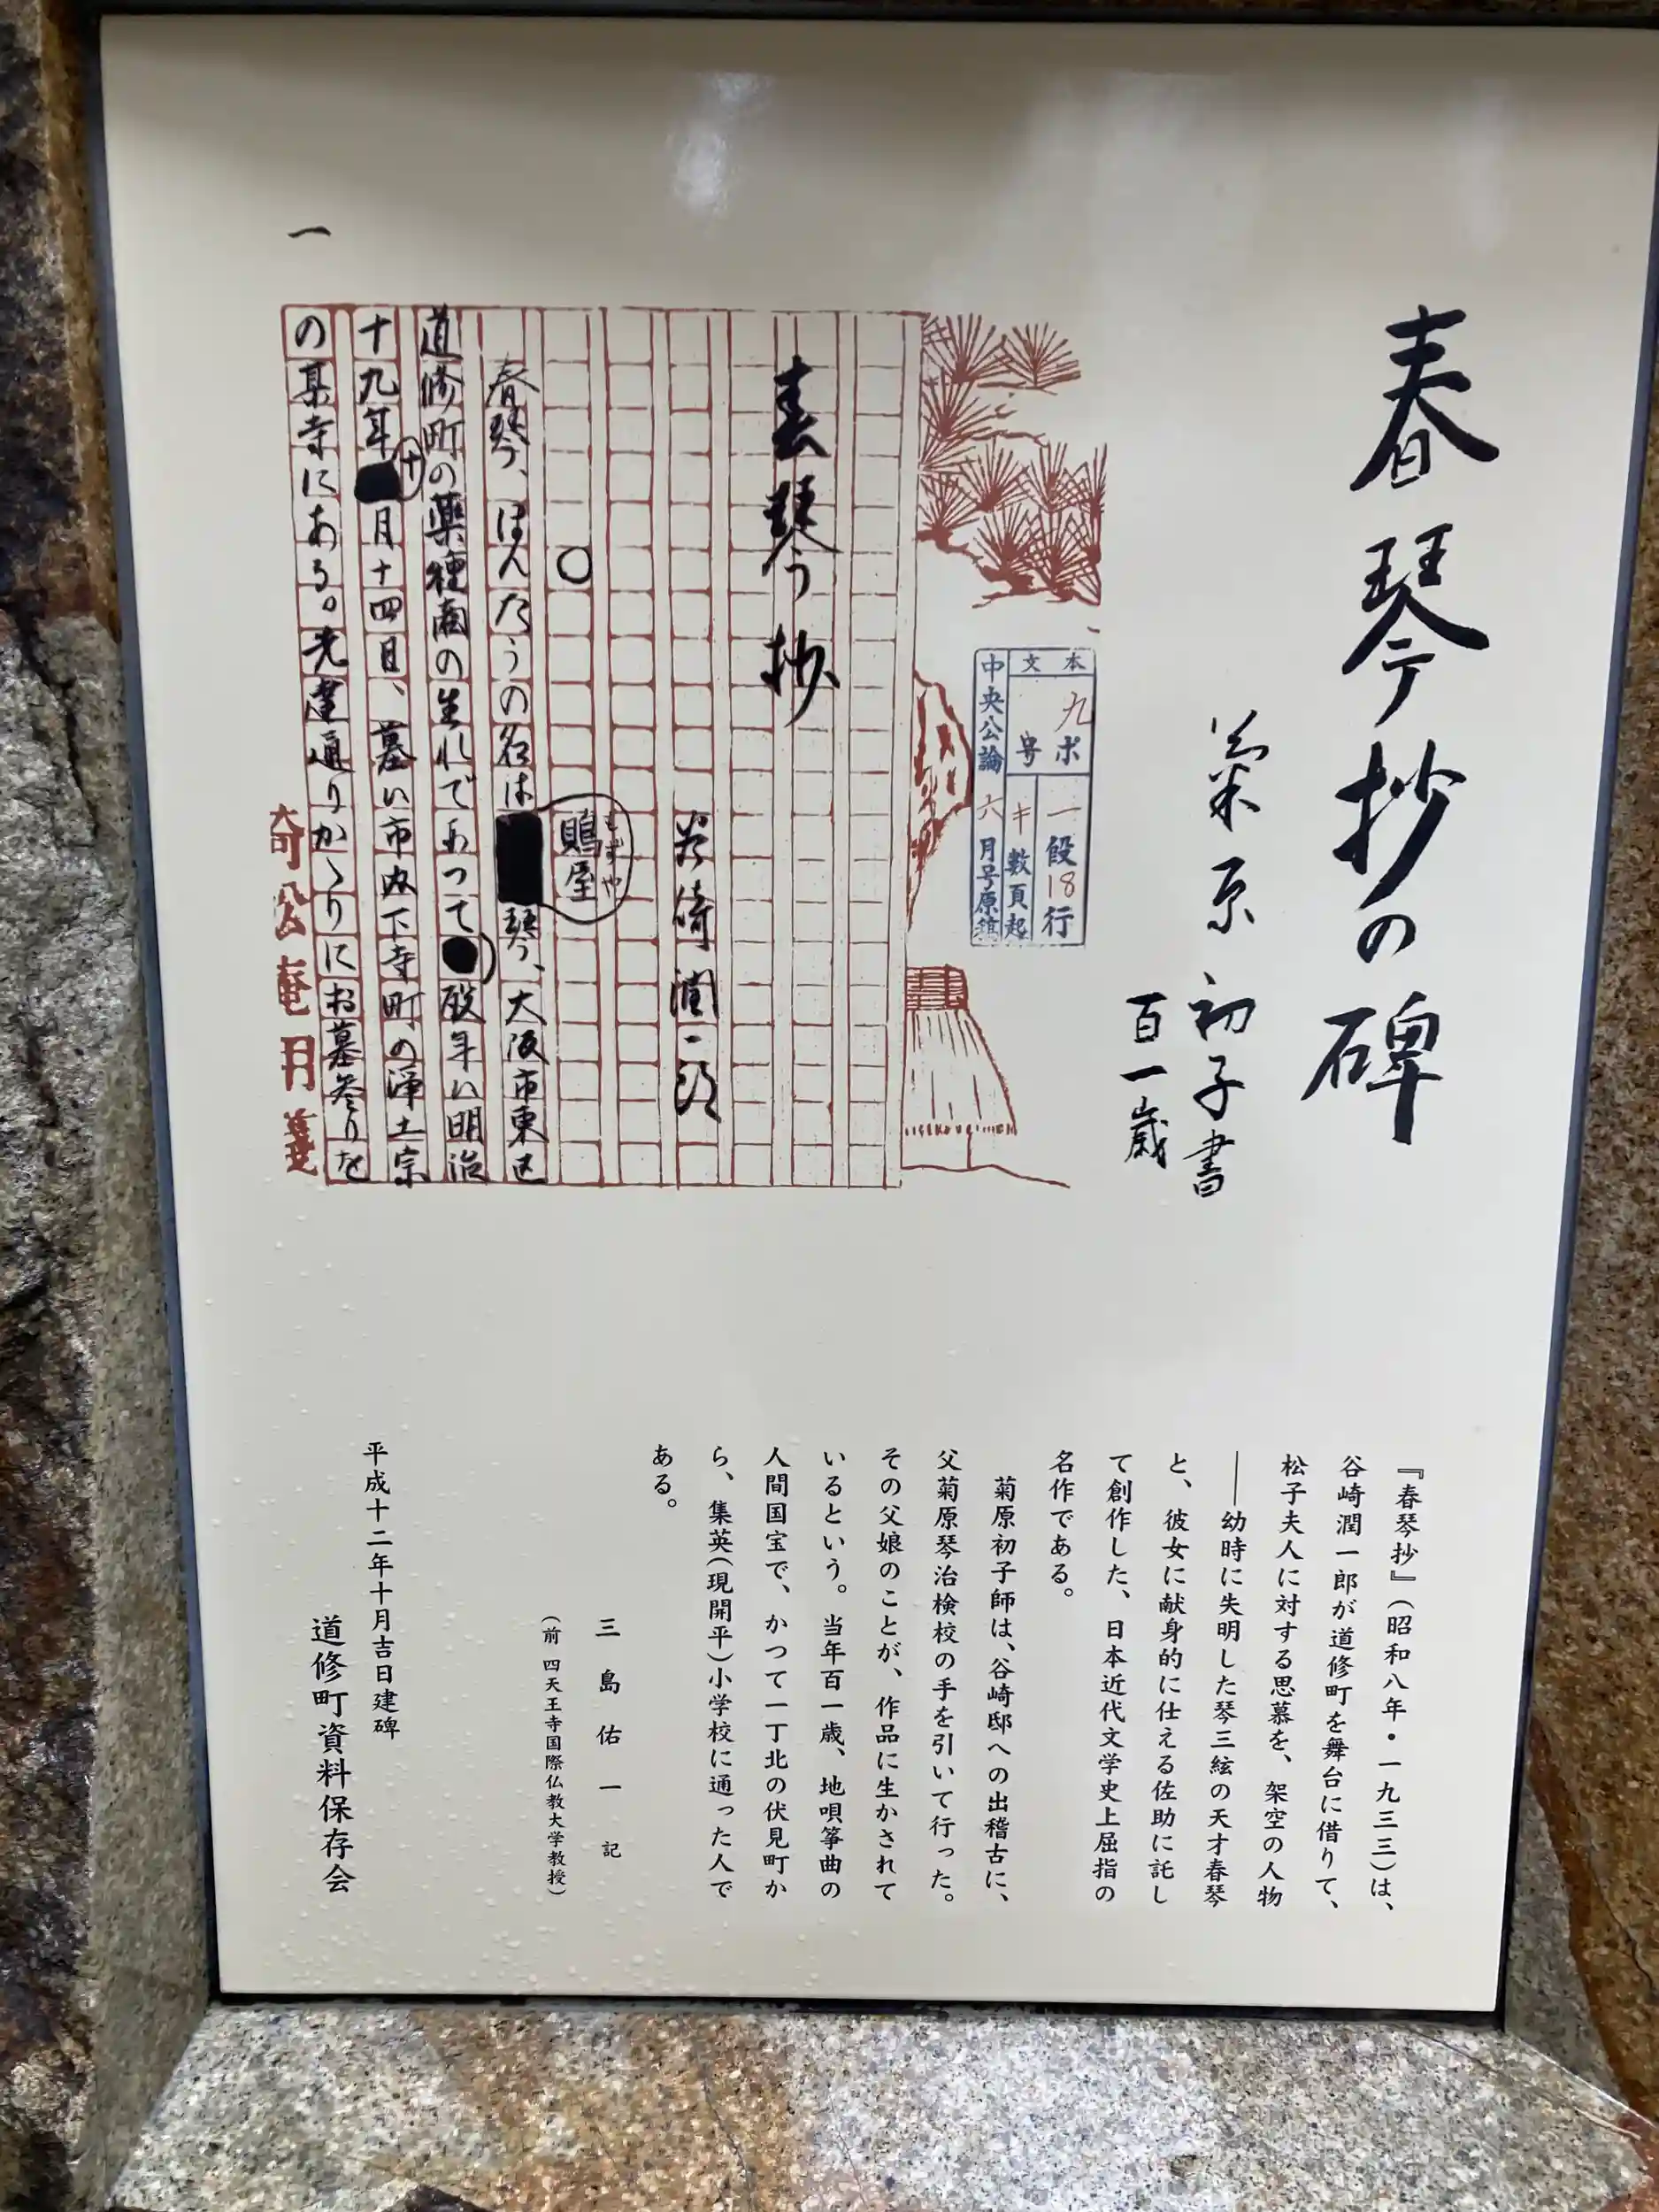 春琴抄の碑
菊原初子書
百一歳
本文
九ポ
一段18行
中央公論六月号原稿
春琴抄
谷崎潤一郎
○
もずや
鵙屋
春琴、ほんたうの名は琴、大阪市東区
道修町の薬種商の生れであつて歿年ハ明治
十
十九年月十四日、墓ハ市内下寺町の浄土宗
の某寺にある。先達通りかゝりにお墓参りを
一
『春琴抄』(昭和八年・一九三三)は、
谷崎潤一郎が道修町を舞台に借りて、
松子夫人に対する思慕を、架空の人物
――幼時に失明した琴三絃の天才春琴
と、彼女に献身的に仕える佐助に託し
て創作した、日本近代文学史上屈指の
名作である。
菊原初子師は、谷崎邸への出稽古に、
父菊原琴治検校の手を引いて行った。
その父娘のことが、作品に生かされて
いるという。当年百一歳、地唄箏曲の
人間国宝で、かつて一丁北の伏見町か
ら、集英(現開平)小学校に通った人で
ある。
三島佑一 記
(前 四天王寺国際仏教大学教授)
平成十二年十月吉日建碑
道修町資料保存会